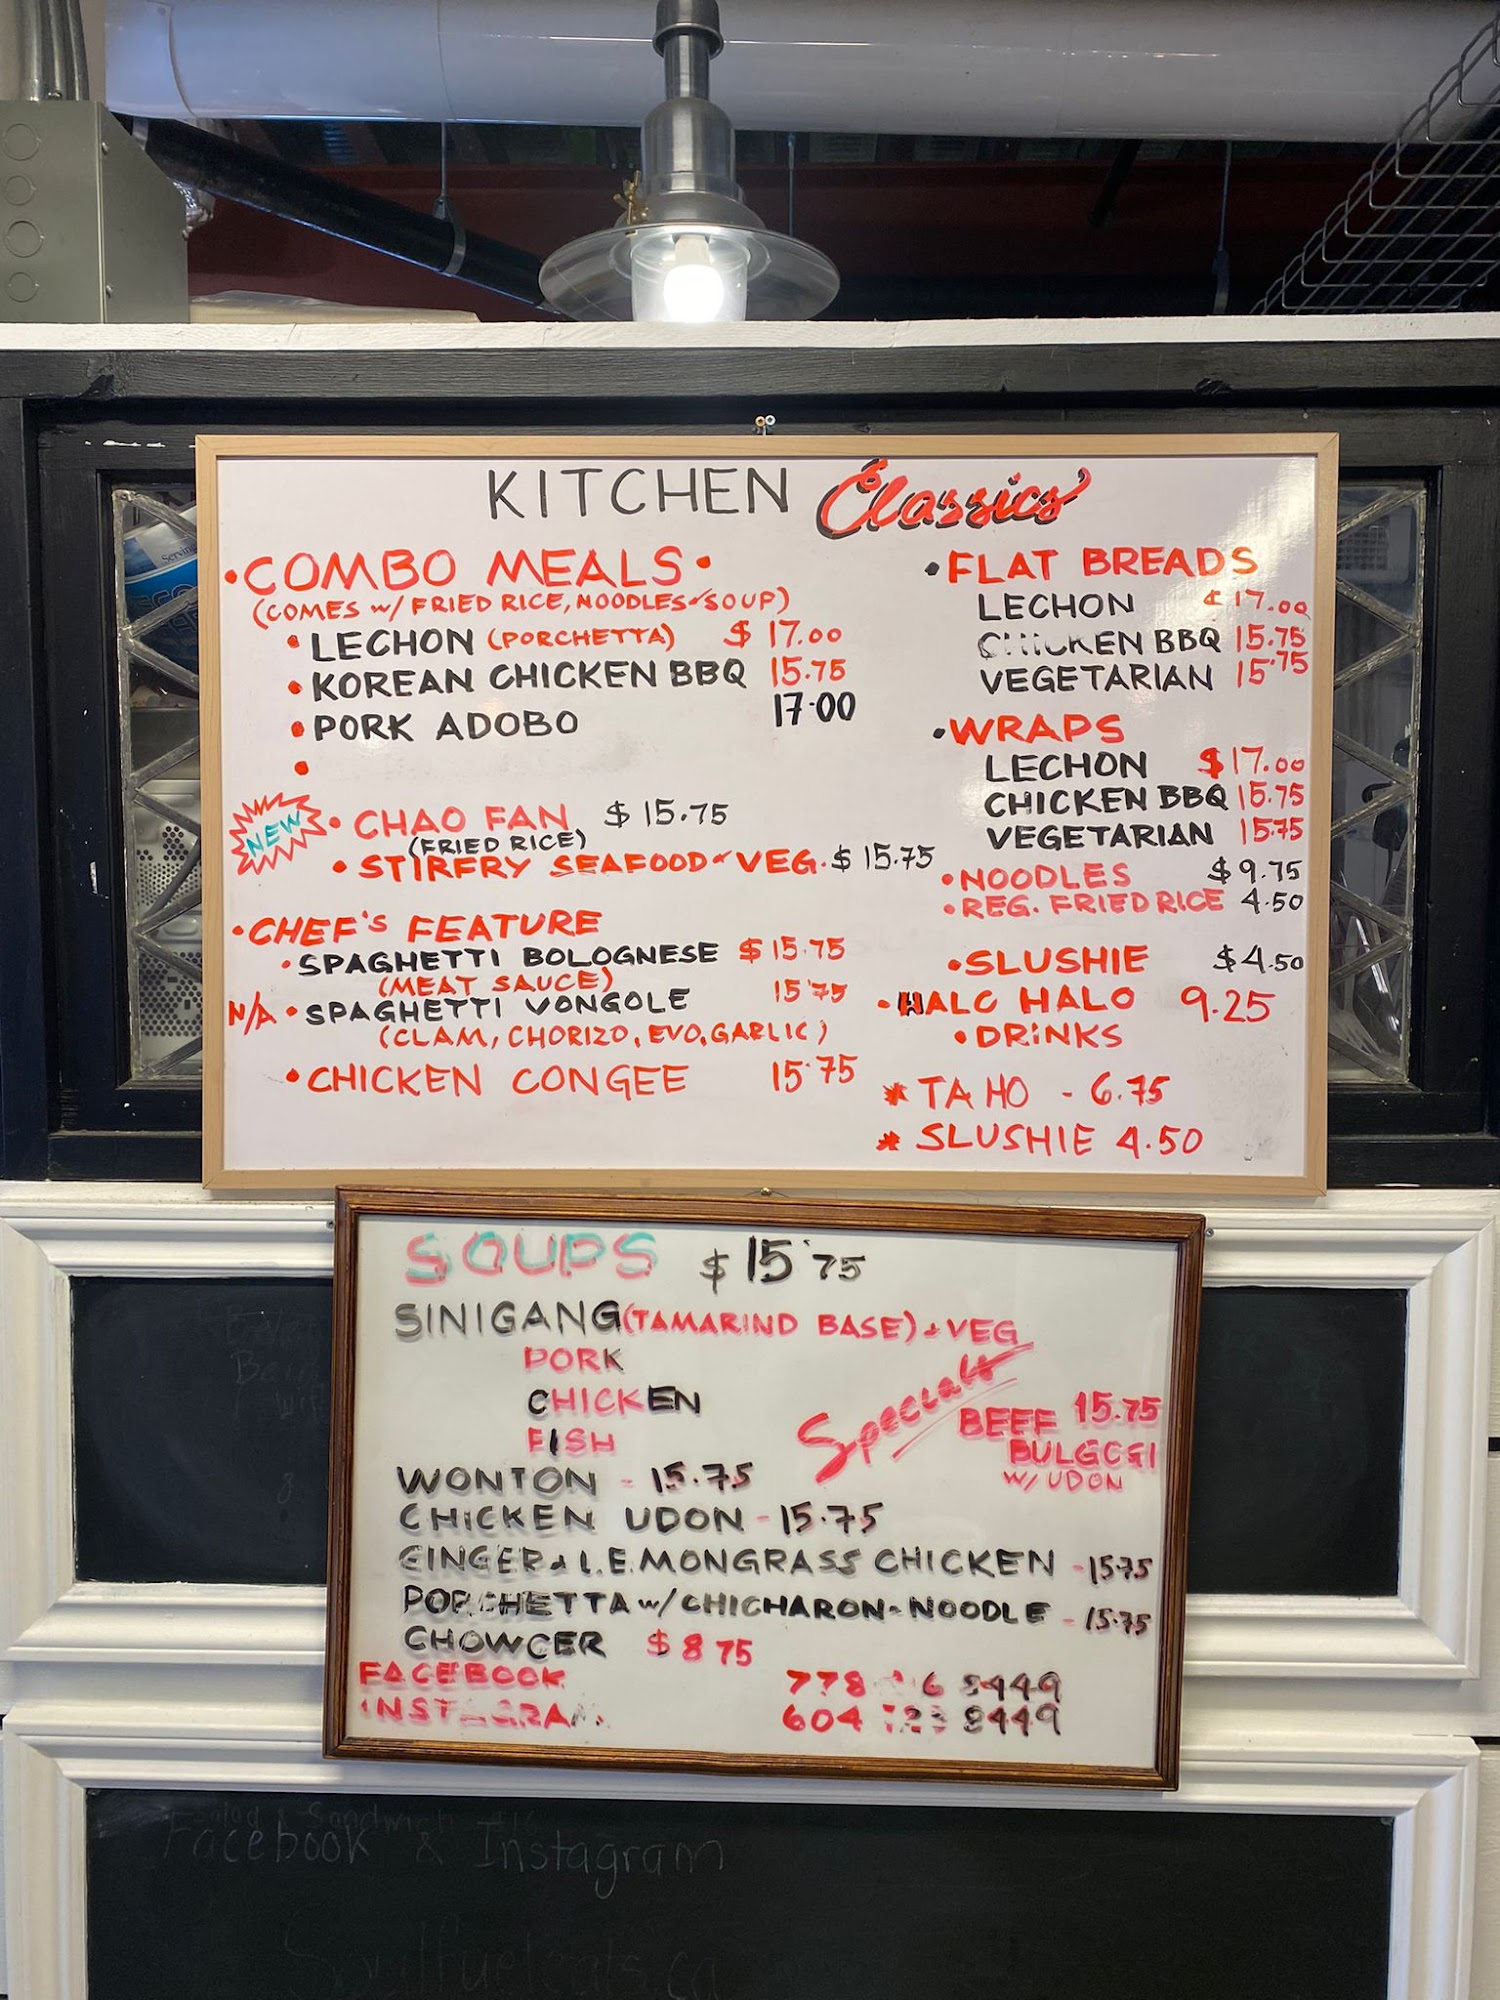 KITCHEN Classics
•COMBO MEALS•
(COMES W/ FRIED RICE, NOODLES & SOUP)
• LECHON (PORCHETTA) $ 17.00
• KOREAN CHICKEN BBQ 15.75
• PORK ADOBO 17.00
•
NEW
• CHAO FAN $ 15.75
(FRIED RICE)
• STIRFRY SEAFOOD & VEG. $ 15.75
• CHEF'S FEATURE
• SPAGHETTI BOLOGNESE $ 15.75
(MEAT SAUCE)
N/A • SPAGHETTI VONGOLE 15.75
(CLAM, CHORIZO, EVO, GARLIC)
• CHICKEN CONGEE 15.75
• FLAT BREADS
LECHON $ 17.00
CHICKEN BBQ 15.75
VEGETARIAN 15.75
• WRAPS
LECHON $ 17.00
CHICKEN BBQ 15.75
VEGETARIAN 15.75
• NOODLES $ 9.75
• REG. FRIED RICE 4.50
• SLUSHIE $4.50
• HALO HALO 9.25
• DRINKS
* TAHO - 6.75
* SLUSHIE 4.50
SOUPS $ 15.75
SINIGANG (TAMARIND BASE) & VEG
PORK
CHICKEN
FISH
Specials
BEEF 15.75
BULGOGI
W/ UDON
WONTON - 15.75
CHICKEN UDON - 15.75
GINGER & LEMONGRASS CHICKEN - 15.75
PORCHETTA W/ CHICHARON - NOODLE - 15.75
CHOWDER $ 8.75
FACEBOOK 778 8449
INSTAGRAM 604 8449
Facebook & Instagram